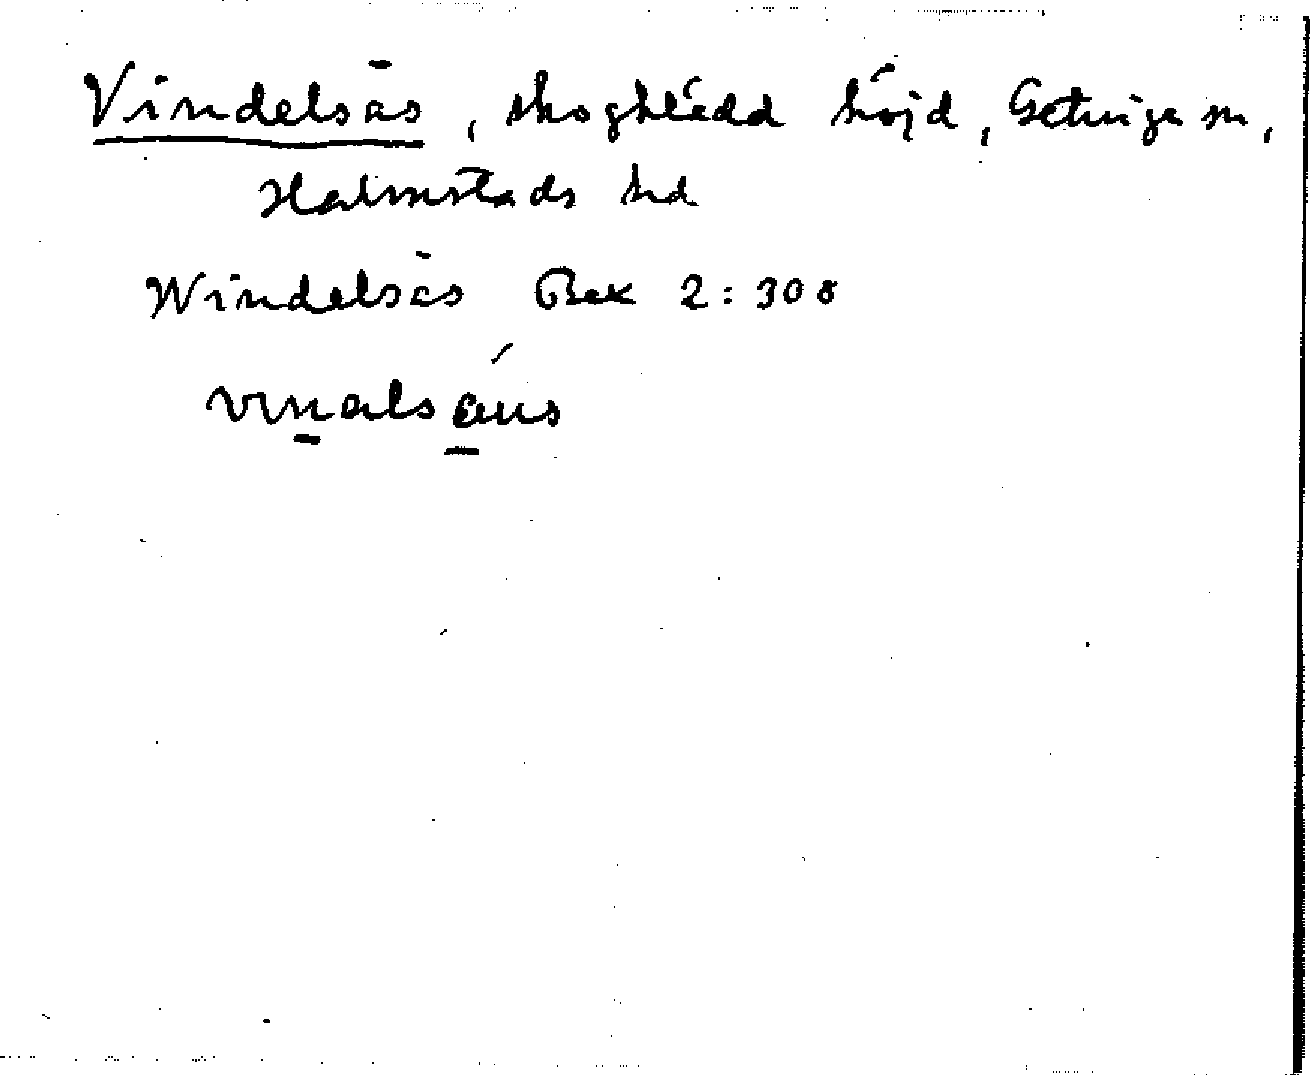 Vindelsås, skogklädd höjd, Getinge sn,
Halmstads hd
Windelsås Bex 2:308
vinalsáus